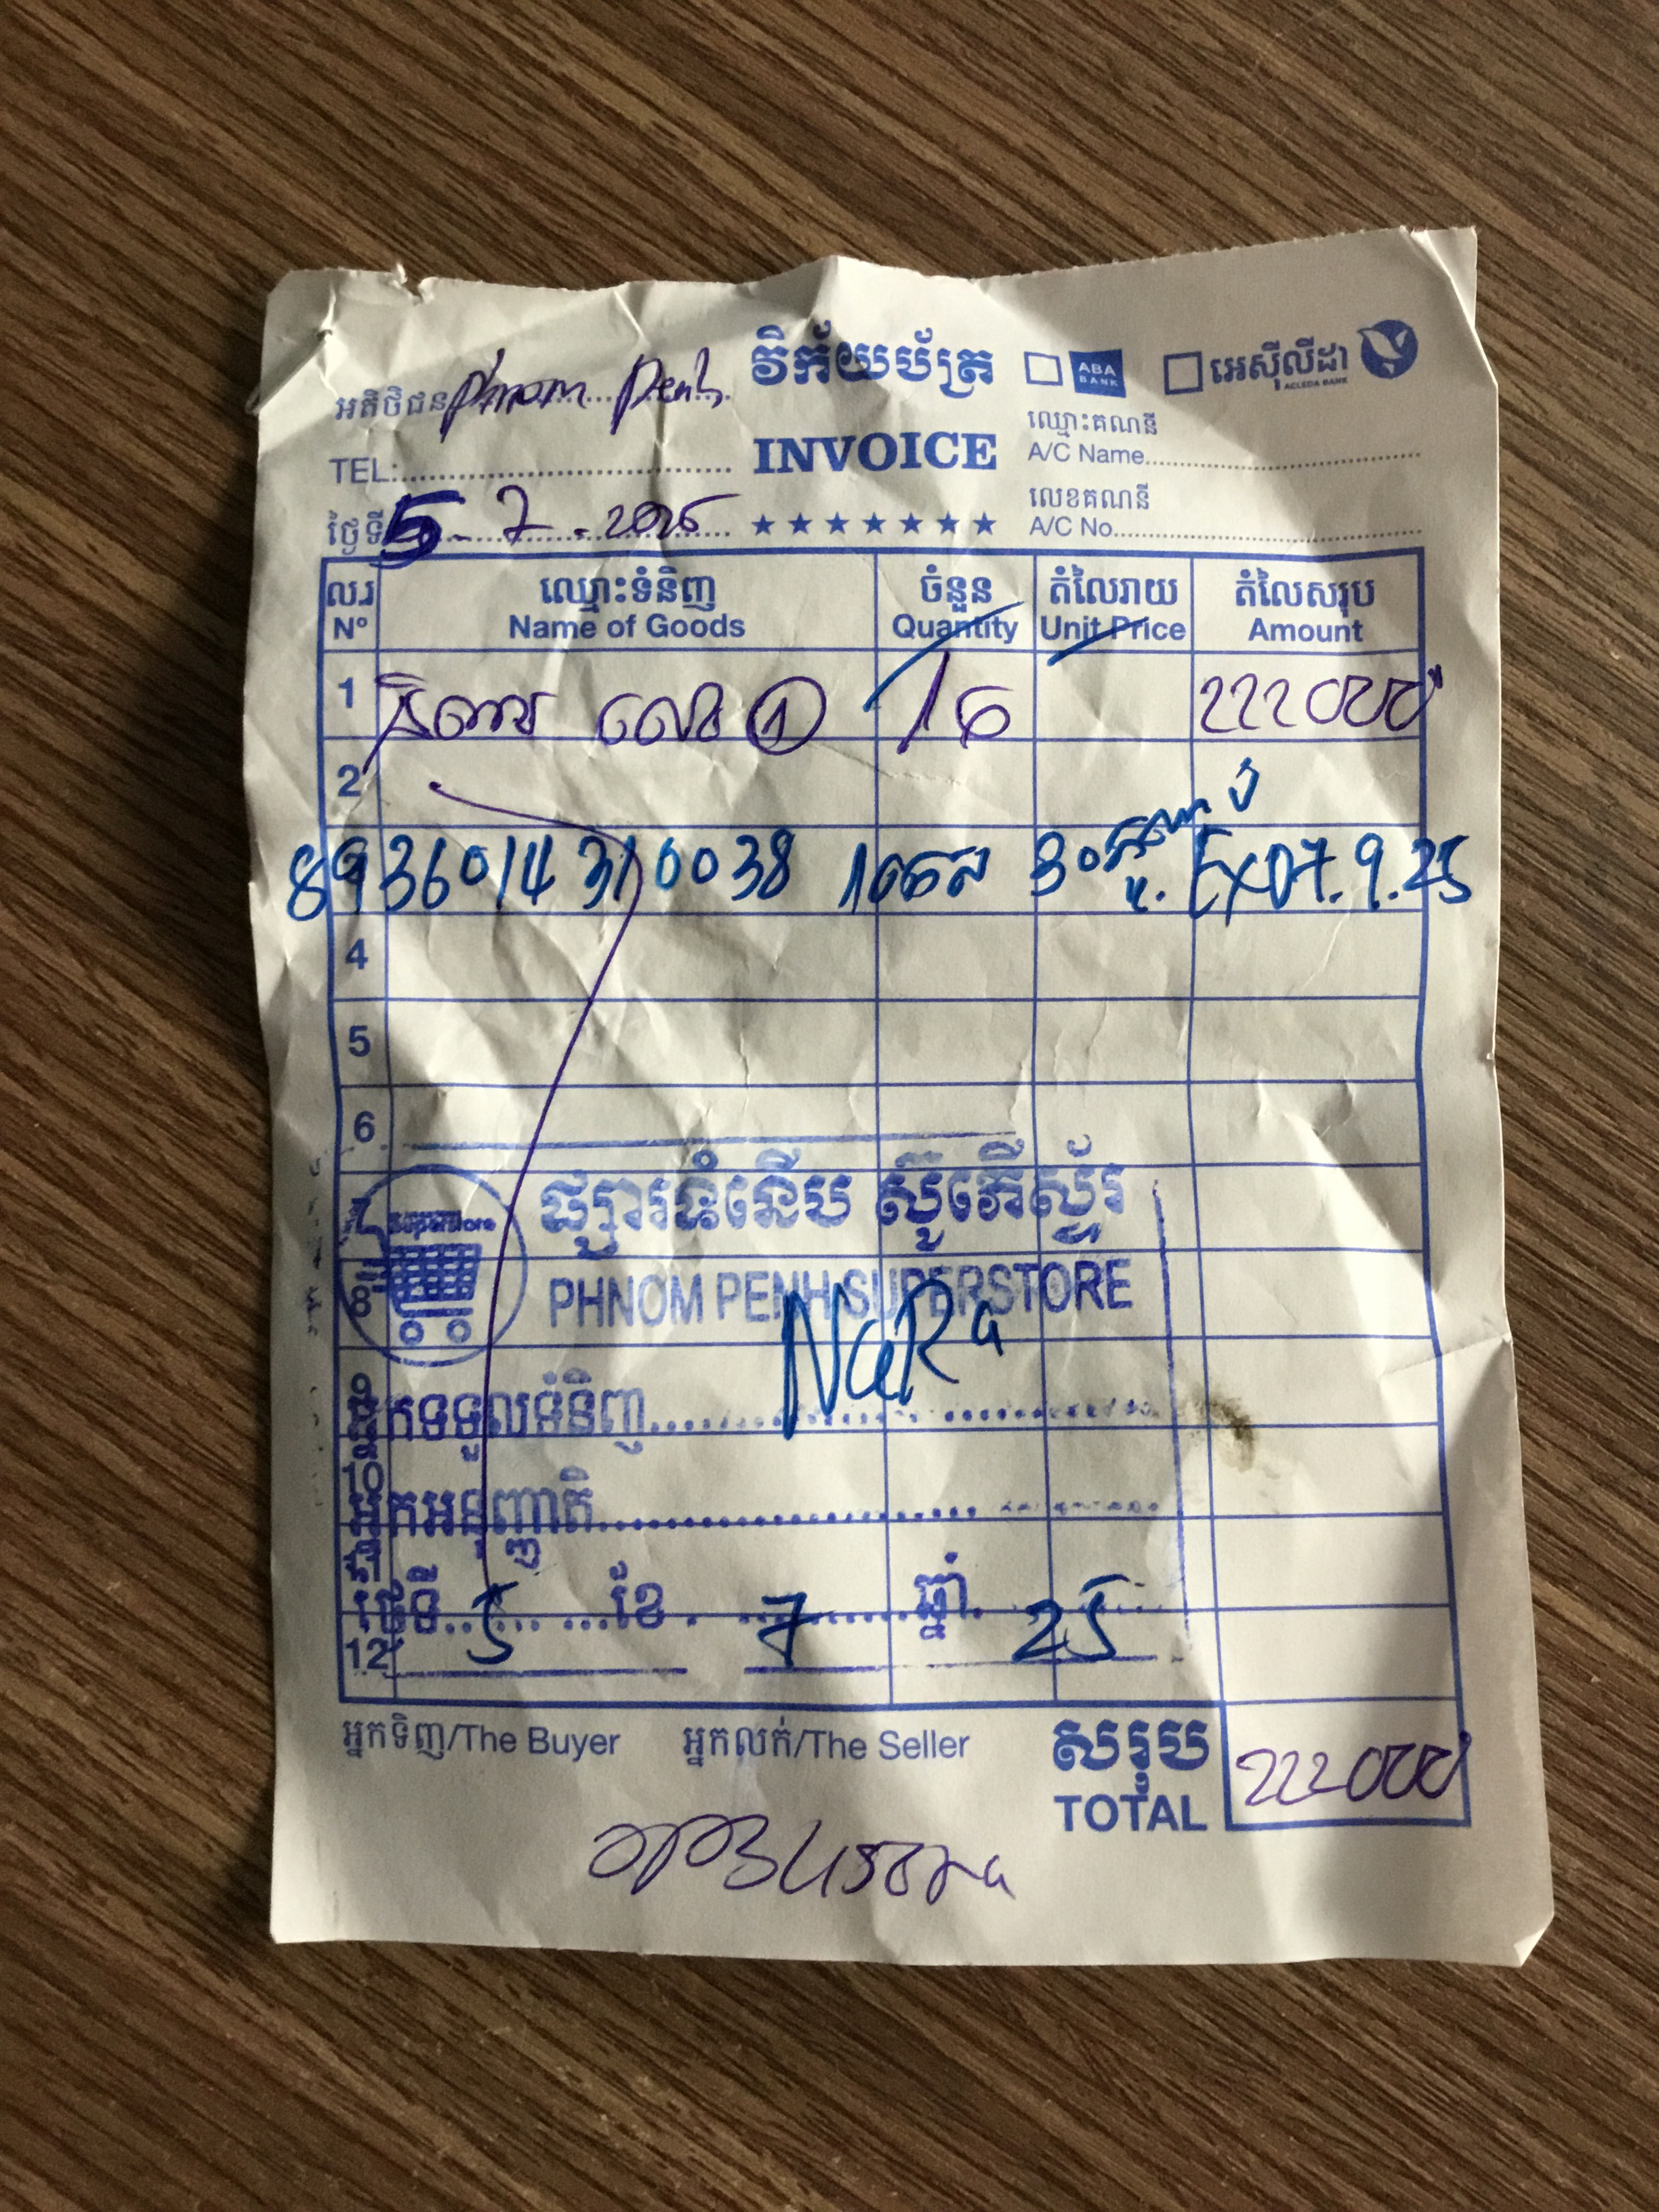 វិក័យប័ត្រ
ABA BANK
អេស៊ីលីដា
ACLEDA BANK
អតិថិជន Phnom Penh
TEL:
INVOICE
ឈ្មោះគណនី
A/C Name
ថ្ងៃទី 5 - 7 - 2025
★★★★★★★
លេខគណនី
A/C No.
ល.រ ឈ្មោះទំនិញ ចំនួន តំលៃរាយ តំលៃសរុប
Nº Name of Goods Quantity Unit Price Amount
1 ① 222000
2
8936014310038 30 EXD7.9.25
4
5
6
7 Superstore ផ្សារទំនើប ស៊ូភើស្ទ័រ
8 PHNOM PENH SUPERSTORE
NaRa
9
អ្នកទទួលទំនិញ
10
អ្នកអនុញ្ញាតិ
11
ថ្ងៃទី 5 ខែ 7 ឆ្នាំ 25
12
អ្នកទិញ/The Buyer អ្នកលក់/The Seller សរុប
TOTAL 222000